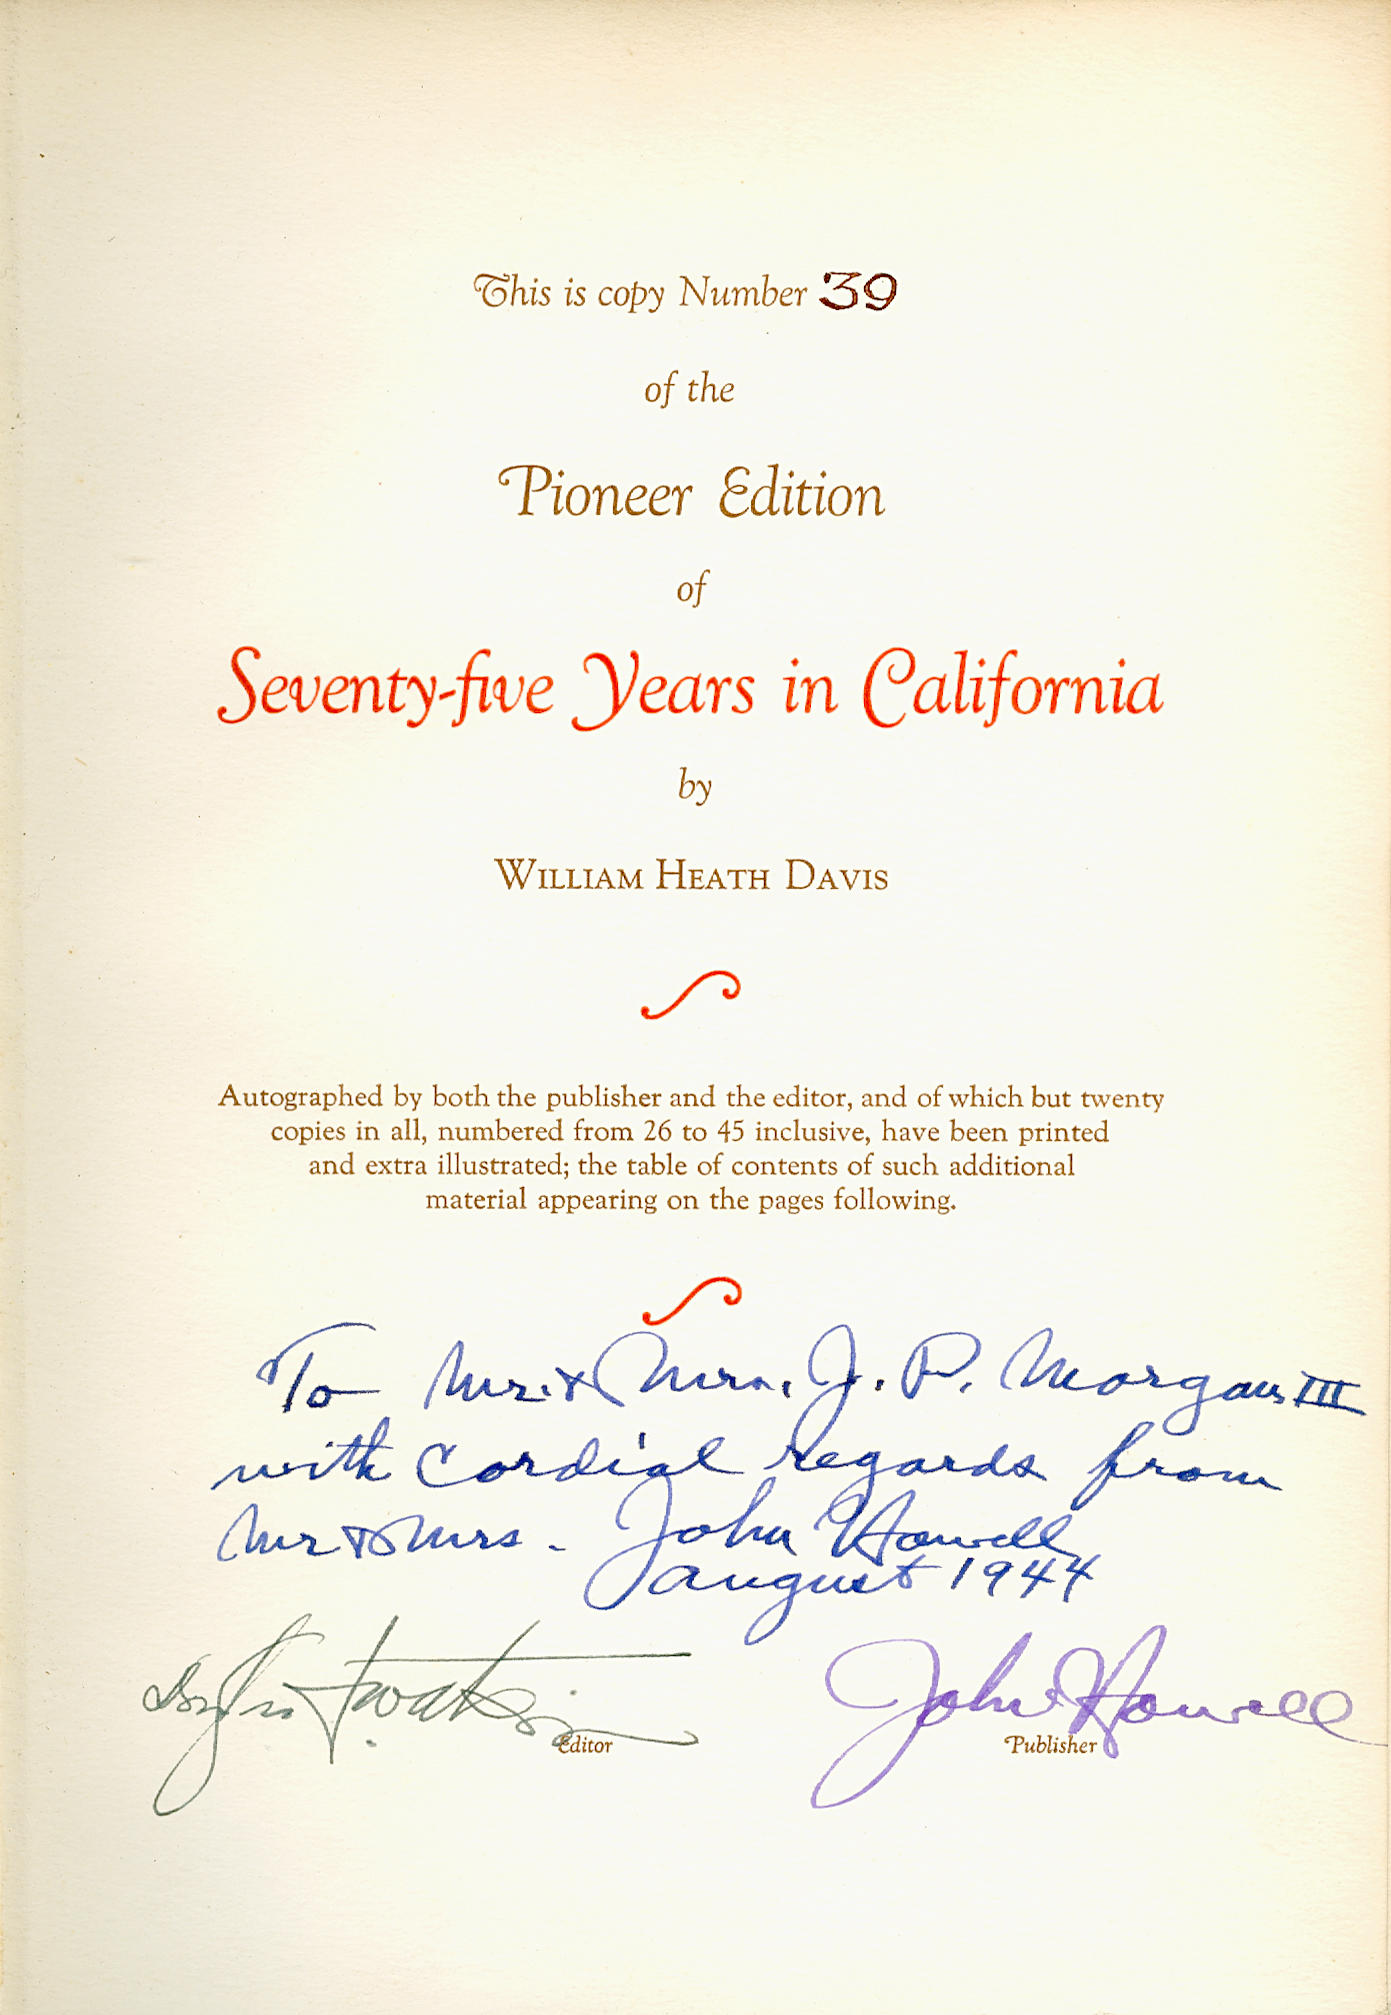 This is copy Number 39
of the
Pioneer Edition
of
Seventy-five Years in California
by
WILLIAM HEATH DAVIS
Autographed by both the publisher and the editor, and of which but twenty
copies in all, numbered from 26 to 45 inclusive, have been printed
and extra illustrated; the table of contents of such additional
material appearing on the pages following.
To Mr. & Mrs. J. P. Morgan III
with cordial regards from
Mr & Mrs. John Howell
August 1944
Watson
John Howell
Editor
Publisher